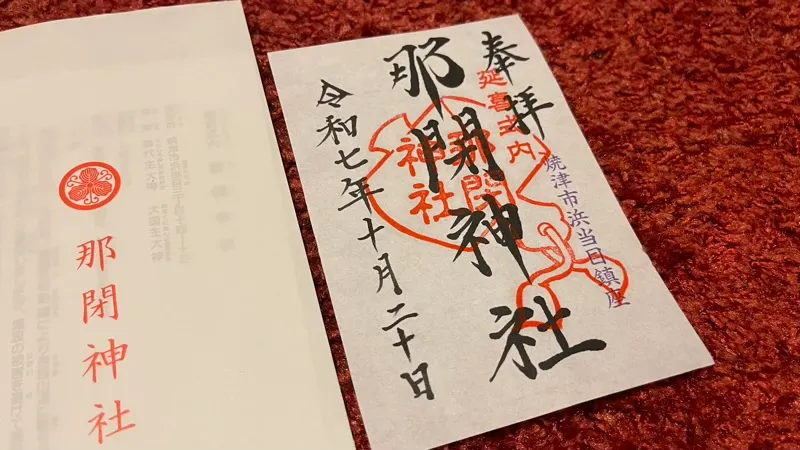 奉拝
延喜式内
那閇神社
那閇神社
焼津市浜当目鎮座
令和七年十月二十日
那閇神社